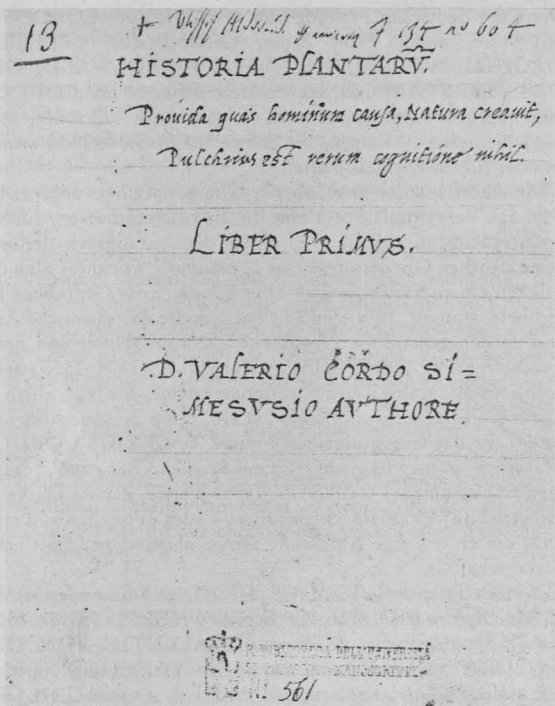 13
+ Ulyss. Aldrov. 7 134 no 604
HISTORIA PLANTARṼ.
Prouida quas hominum causa, Natura creauit,
Pulchrius est rerum cognitione nihil.
LIBER PRIMVS.
D. VALERIO CORDO SI=
MESVSIO AVTHORE.
R. BIBLIOTECA DELL'UNIVERSITÀ
MANOSCRITTI
N. 561